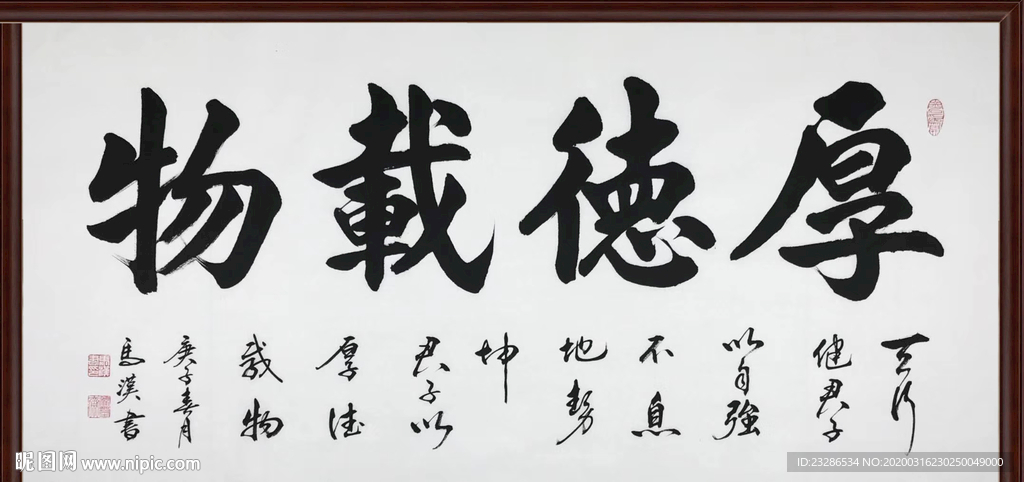 厚德載物
天行
健君子
以自強
不息
地勢
坤
君子以
厚德
載物
庚子春月
馬漢書
昵图网 www.nipic.com
ID:23286534 NO:20200316230250049000